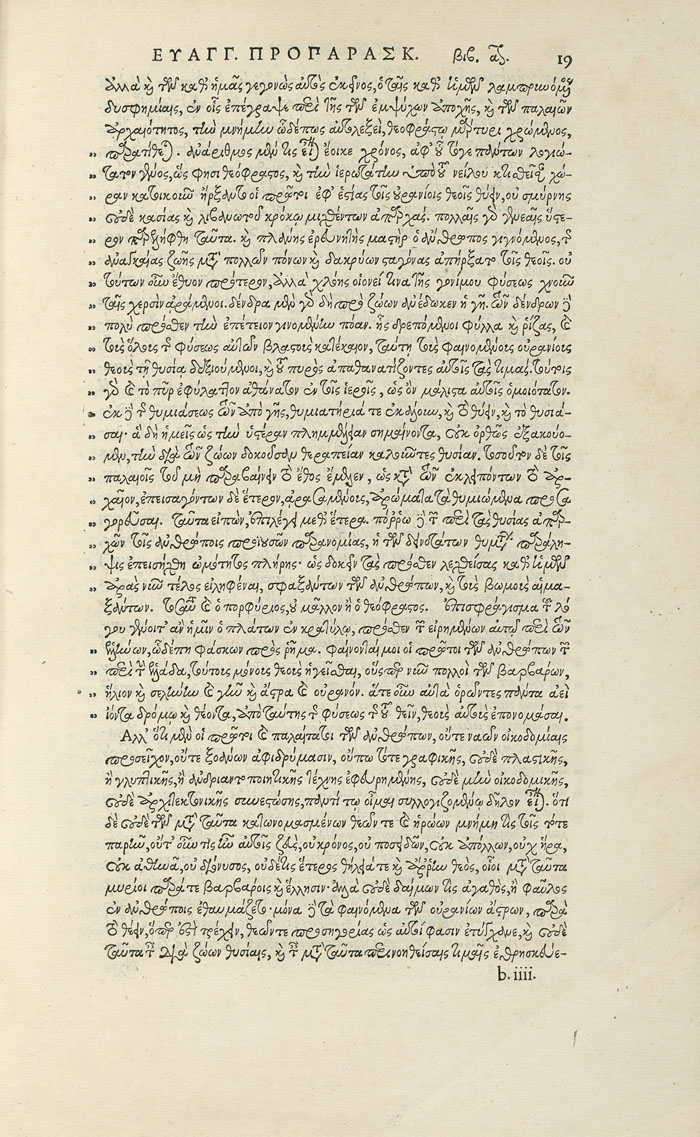 ΕΥΑΓΓ. ΠΡΟΠΑΡΑΣΚ. βιβ. αʹ. 19
ἀλλὰ καὶ τῶν καθ' ἡμᾶς γεγονὼς αὐτὸς ἐκεῖνος, ὁ ταῖς καθ' ἡμῶν λαμπρυνόμενος
δυσφημίαις, ἐν οἷς ἐπέγραψε περὶ τῆς τῶν ἐμψύχων ἀποχῆς, καὶ τῶν παλαιῶν
ἀρχαιότητος, τὴν μνήμην ὧδέ πως αὐτολεξεὶ, θεοφράστῳ μάρτυρι χρώμενος,
παρατίθεται. ἀνάριθμος μέν τις εἶναι ἔοικε χρόνος, ἀφ' οὗ τό γε πάντων λογιώ-
τατον γένος, ὥς φησι θεόφραστος, καὶ τὴν ἱερωτάτην ὑπὸ τοῦ νείλου κτισθεῖσαν χώ-
ραν κατοικοῦν ἤρξαντο οἱ πρῶτοι ἐφ' ἑστίας τοῖς οὐρανίοις θεοῖς θύειν, οὐ σμύρνης
οὐδὲ κασίας καὶ λιβανωτοῦ κρόκῳ μιχθέντων ἀπαρχάς. πολλαῖς γὰρ γενεαῖς ὕστε-
ρον παρελήφθη ταῦτα. καὶ πλάνης ἐρευνητὴς μαστὴρ ὁ ἄνθρωπος γιγνόμενος, τῆς
ἀναγκαίας ζωῆς μετὰ πολλῶν πόνων καὶ δακρύων σταγόνας ἀπήρξατο τοῖς θεοῖς. οὐ
τούτων οὖν ἔθυον πρότερον, ἀλλὰ χλόης οἱονεί τινα τῆς γονίμου φύσεως χνοῦν
ταῖς χερσὶν ἀράμενοι. δένδρα μὲν γὰρ δὴ πρὸ ζώων ἀνέδωκεν ἡ γῆ. τῶν δένδρων δὲ
πολὺ πρόσθεν τὴν ἐπέτειον γινομένην πόαν. ἧς δρεπόμενοι φύλλα καὶ ῥίζας, καὶ
τοὺς ὅλους τῆς φύσεως αὐτῶν βλαστοὺς κατέκαιον, ταύτῃ τοὺς φαινομένους οὐρανίους
θεοὺς τῇ θυσίᾳ δεξιούμενοι, καὶ τοῦ πυρὸς ἀπαθανατίζοντες αὐτοῖς τὰς τιμάς. τούτοις
γὰρ καὶ τὸ πῦρ ἐφύλαττον ἀθάνατον ἐν τοῖς ἱεροῖς, ὡς ὂν μάλιστα αὐτοῖς ὁμοιότατον.
ἐκ δὲ τῆς θυμιάσεως τῶν ἀπὸ γῆς, θυμιατήριά τε ἐκάλουν, καὶ τὸ θύειν, καὶ τὸ θυσιά-
σαι· ἃ δὴ ἡμεῖς ὡς τὴν ὑστέραν πλημμέλειαν σημαίνοντα, οὐκ ὀρθῶς ἐξακούο-
μεν, τὴν διὰ τῶν ζώων δοκοῦσαν θεραπείαν καλοῦντες θυσίαν. τοσοῦτον δὲ τοῖς
παλαιοῖς τοῦ μὴ παραβαίνειν τὸ ἔθος ἔμελεν, ὡς κατὰ τῶν ἐκλειπόντων τὸ ἀρ-
χαῖον, ἐπεισαγόντων δὲ ἕτερον, ἀρασαμένους, ἀρώματα τὰ θυμιώμενα προσα-
γορεῦσαι. ταῦτα εἰπὼν, ἐπιλέγει μεθ' ἕτερα. πόρρω δὲ τῶν περὶ τὰς θυσίας ἀπαρ-
χῶν τοῖς ἀνθρώποις προϊουσῶν παρανομίας, ἡ τῶν δεινοτάτων θυμάτων παράλη-
ψις ἐπεισήχθη ὠμότητος πλήρης· ὡς δοκεῖν τὰς πρόσθεν λεχθείσας καθ' ἡμῶν
ἀρὰς νῦν τέλος εἰληφέναι, σφαξάντων τῶν ἀνθρώπων, καὶ τοὺς βωμοὺς αἱμα-
ξάντων. τοσαῦτα καὶ ὁ πορφύριος, οὐ μᾶλλον ἢ ὁ θεόφραστος. ἐπισφράγισμα τοῦ λό
γου γένοιτ' ἂν ἡμῖν ὁ πλάτων ἐν κρατύλῳ, πρόσθεν τῶν εἰρημένων αὐτῷ περὶ τῶν
ἑλλήνων, ὧδέ πη φάσκων πρὸς ῥῆμα. φαίνονταί μοι οἱ πρῶτοι τῶν ἀνθρώπων τῶν
περὶ τὴν ἑλλάδα, τούτους μόνους θεοὺς ἡγεῖσθαι, οὕσπερ νῦν πολλοὶ τῶν βαρβάρων,
ἥλιον καὶ σελήνην καὶ γῆν καὶ ἄστρα καὶ οὐρανόν. ἅτε οὖν αὐτὰ ὁρῶντες πάντα ἀεὶ
ἰόντα δρόμῳ καὶ θέοντα, ἀπὸ ταύτης τῆς φύσεως τῆς τοῦ θεῖν, θεοὺς αὐτοὺς ἐπονομάσαι.
Ἀλλ' ὅτι μὲν οἱ πρῶτοι καὶ παλαίτατοι τῶν ἀνθρώπων, οὔτε ναῶν οἰκοδομίαις
προσεῖχον, οὔτε ξοάνων ἀφιδρύμασιν, οὔπω τότε γραφικῆς, οὐδὲ πλαστικῆς,
ἢ γλυπτικῆς, ἢ ἀνδριαντοποιητικῆς τέχνης ἐφευρημένης, οὐδὲ μὴν οἰκοδομικῆς,
οὐδὲ ἀρχιτεκτονικῆς συνεστώσης, παντί τῳ οἶμαι συλλογιζομένῳ δῆλον εἶναι. ὅτι
δὲ οὐδὲ τῶν μετὰ ταῦτα κατωνομασμένων θεῶν τε καὶ ἡρώων μνήμη τις τοῖς τότε
παρῆν, οὔτ' οὖν τις ἦν αὐτοῖς ζεὺς, οὐ κρόνος, οὐ ποσειδῶν, οὐκ ἀπόλλων, οὐχ ἥρα,
οὐκ ἀθηνᾶ, οὐ διόνυσος, οὐδέ τις ἕτερος θῆλύς τε καὶ ἄρρην θεὸς, οἷοι μετὰ ταῦτα
μυρίοι παρά τε βαρβάροις καὶ ἕλλησιν· ἀλλὰ οὐδὲ δαίμων τις ἀγαθὸς, ἢ φαῦλος
ἐν ἀνθρώποις ἐθαυμάζετο· μόνα δὲ τὰ φαινόμενα τῶν οὐρανίων ἄστρων, παρὰ
τὸ θέειν, ὅπερ ἐστὶ τρέχειν, θεῶν τε προσηγορίας ὡς αὐτοί φασιν ἐτύγχανε, καὶ οὐδὲ
ταῦτα ταῖς διὰ ζώων θυσίαις, καὶ ταῖς μετὰ ταῦτα περινοηθείσαις τιμαῖς ἐθρησκεύε-
b. iiii.